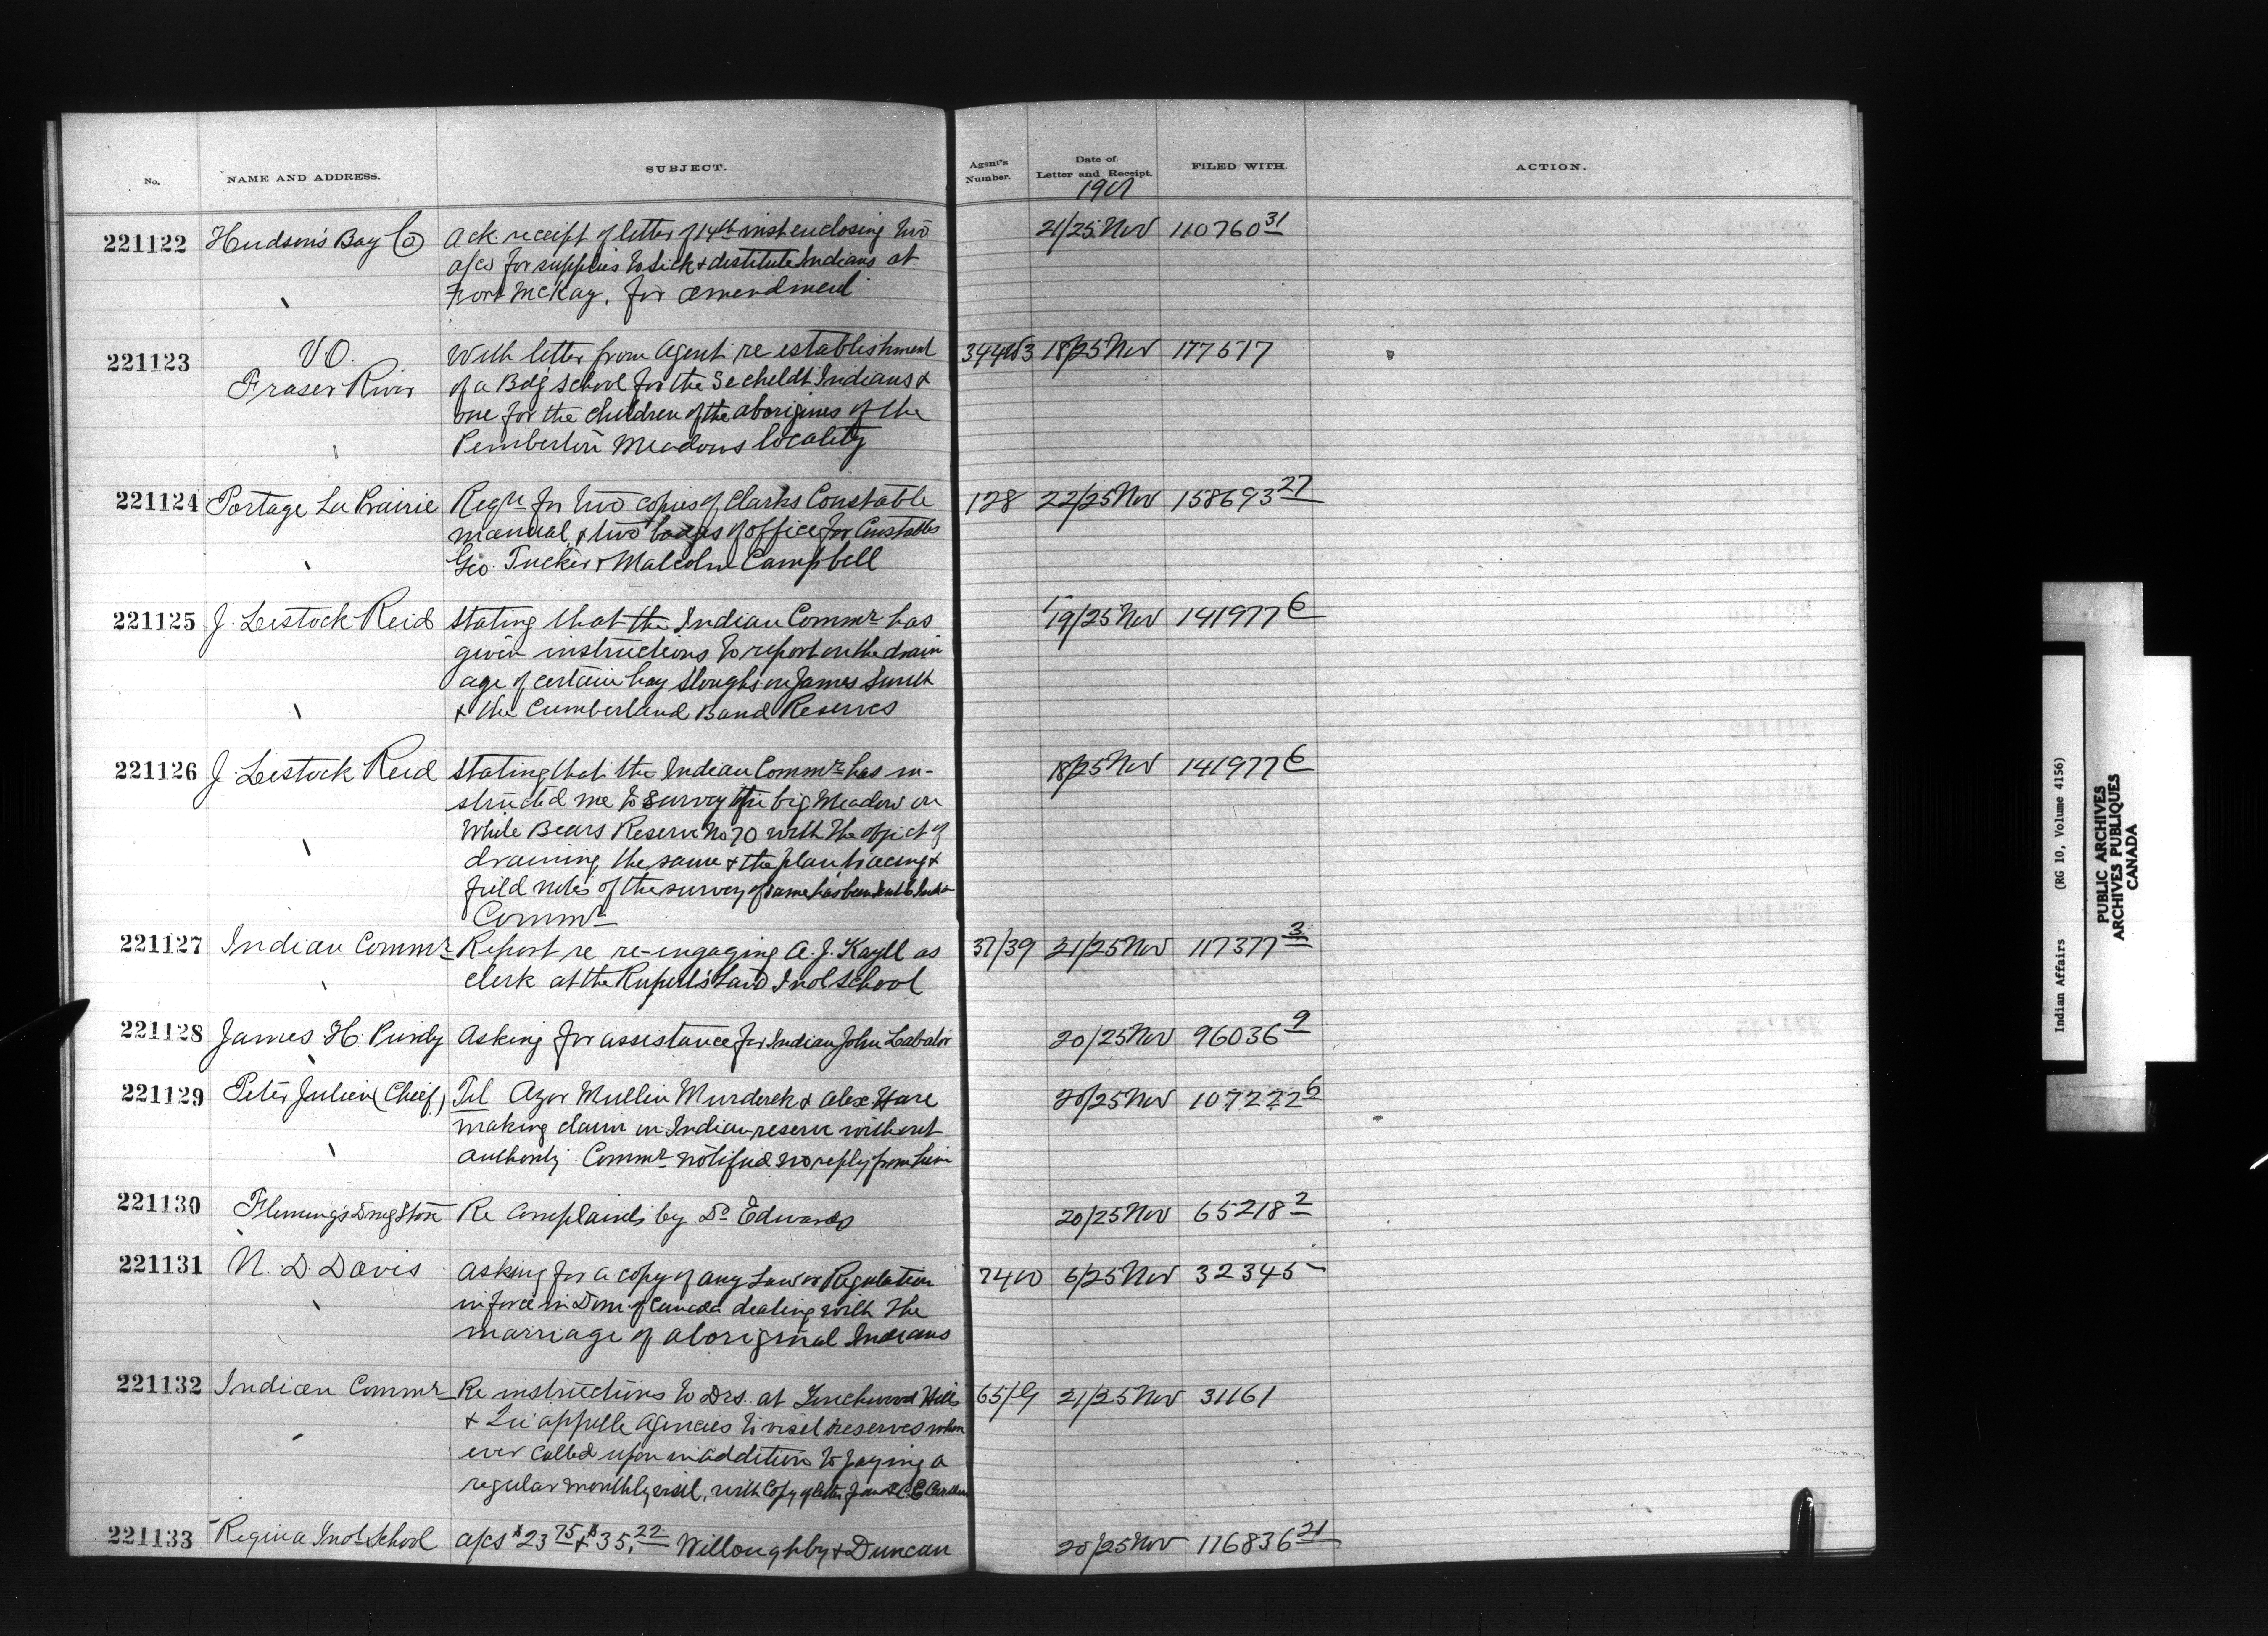 No. NAME AND ADDRESS. SUBJECT. Agent's Number. Date of Letter and Receipt. FILED WITH. ACTION.
1901
221122 Hudson's Bay Co Ack receipt of letter of 14th inst enclosing two 21/25 Nov 110760 31
a/cs for supplies to sick & destitute Indians at
Fort McKay, for amendment
221123 V O. With letter from Agent re establishment 18/25 Nov 177517
Fraser River of a Bdg School for the Secheldt Indians &
one for the children of the aborigines of the
Pemberton Meadows locality
221124 Portage La Prairie Reqn for two copies of Clarks Constable 128 22/25 Nov 158693 27
manual & two badges of office for Constables
Geo. Tucker & Malcolm Campbell
221125 J. Lestock Reid Stating that the Indian Commr has 19/25 Nov 141977 6
given instructions to report on the drain
age of certain hay sloughs on James Smith
& the Cumberland Band Reserves
221126 J. Lestock Reid Stating that the Indian Commr has in- 18/25 Nov 141977 6
structed me to survey the big Meadow on
White Bears Reserve No 70 with the object of
draining the same & the plan tracing &
field notes of the survey of same has been sent to Indian
Commr
221127 Indian Commr Report re re-engaging A. J. Kayll as 37/39 21/25 Nov 117377 3
clerk at the Rupert's Land Indl School
221128 James H. Purdy Asking for assistance for Indian John Labador 20/25 Nov 96036 9
221129 Peter Julien (Chief) Tel Azor Mullin Murderek & Alex Hare 20/25 Nov 107222 6
making claim on Indian reserve without
authority. Commr notified no reply from him
221130 Flemings Drug Store Re Complaints by Dr Edwards 20/25 Nov 65218 2
221131 N. D. Davis Asking for a copy of any Law or Regulation 7400 6/25 Nov 32345
in force in Dom. of Canada dealing with the
marriage of aboriginal Indians
221132 Indian Commr Re instructions to Drs. at Touchwood Hills 65/9 21/25 Nov 31161
& Qu'appelle Agencies to visit reserves when
ever called upon in addition to paying a
regular monthly visit, with Copy of letter from C.E.
221133 Regina Indl School a/cs $23 75 & $35. 22 Willoughby & Duncan 20/25 Nov 116836 21
Indian Affairs (RG 10, Volume 4156)
PUBLIC ARCHIVES
ARCHIVES PUBLIQUES
CANADA